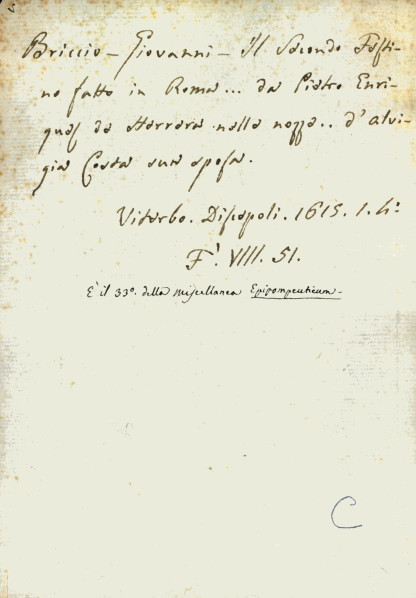 Briccio - Giovanni - Il Secondo Festi-
no fatto in Roma... da Pietro Enri-
ques de Herrera nelle nozze.. d'alvi-
gia Costa sua sposa.
Viterbo. Discepoli. 1615. 1. 4º
F¹. VIII. 51.
E' il 33º. della Miscellanea Epipompeuticum -
C